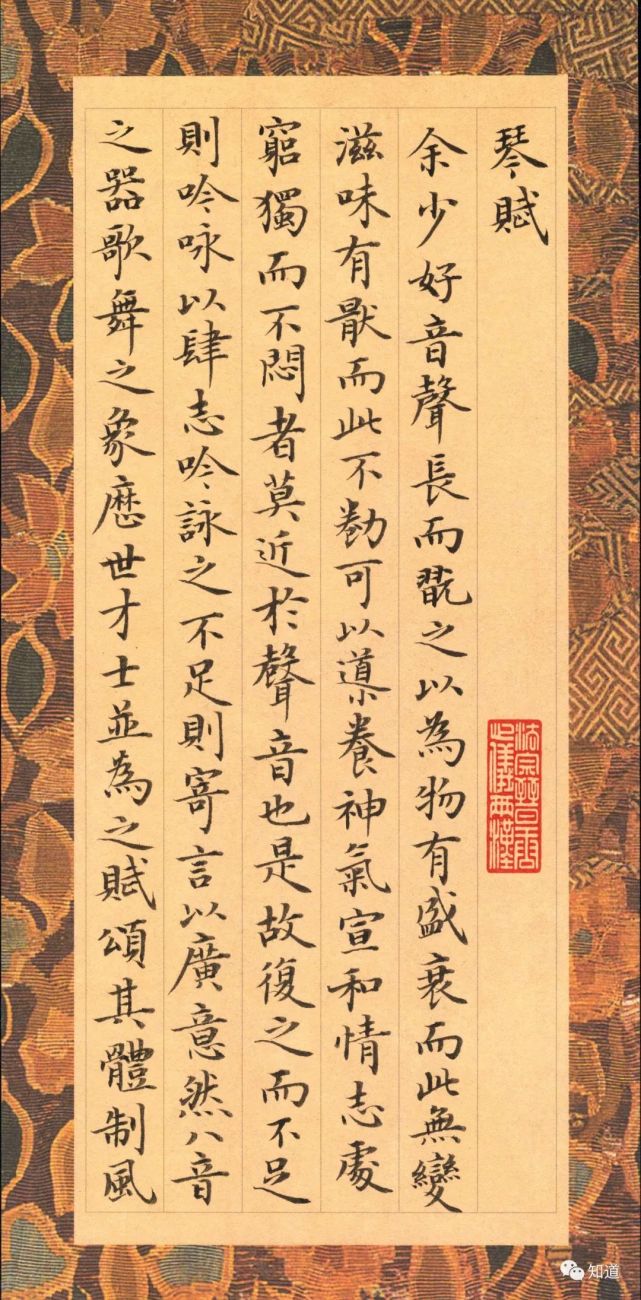 琴賦
余少好音聲長而翫之以為物有盛衰而此無變
滋味有猒而此不勌可以導養神氣宣和情志處
窮獨而不悶者莫近於聲音也是故復之而不足
則吟咏以肆志吟詠之不足則寄言以廣意然八音
之器歌舞之象歷世才士並為之賦頌其體制風
法宗晉唐
儀兩漢
知道